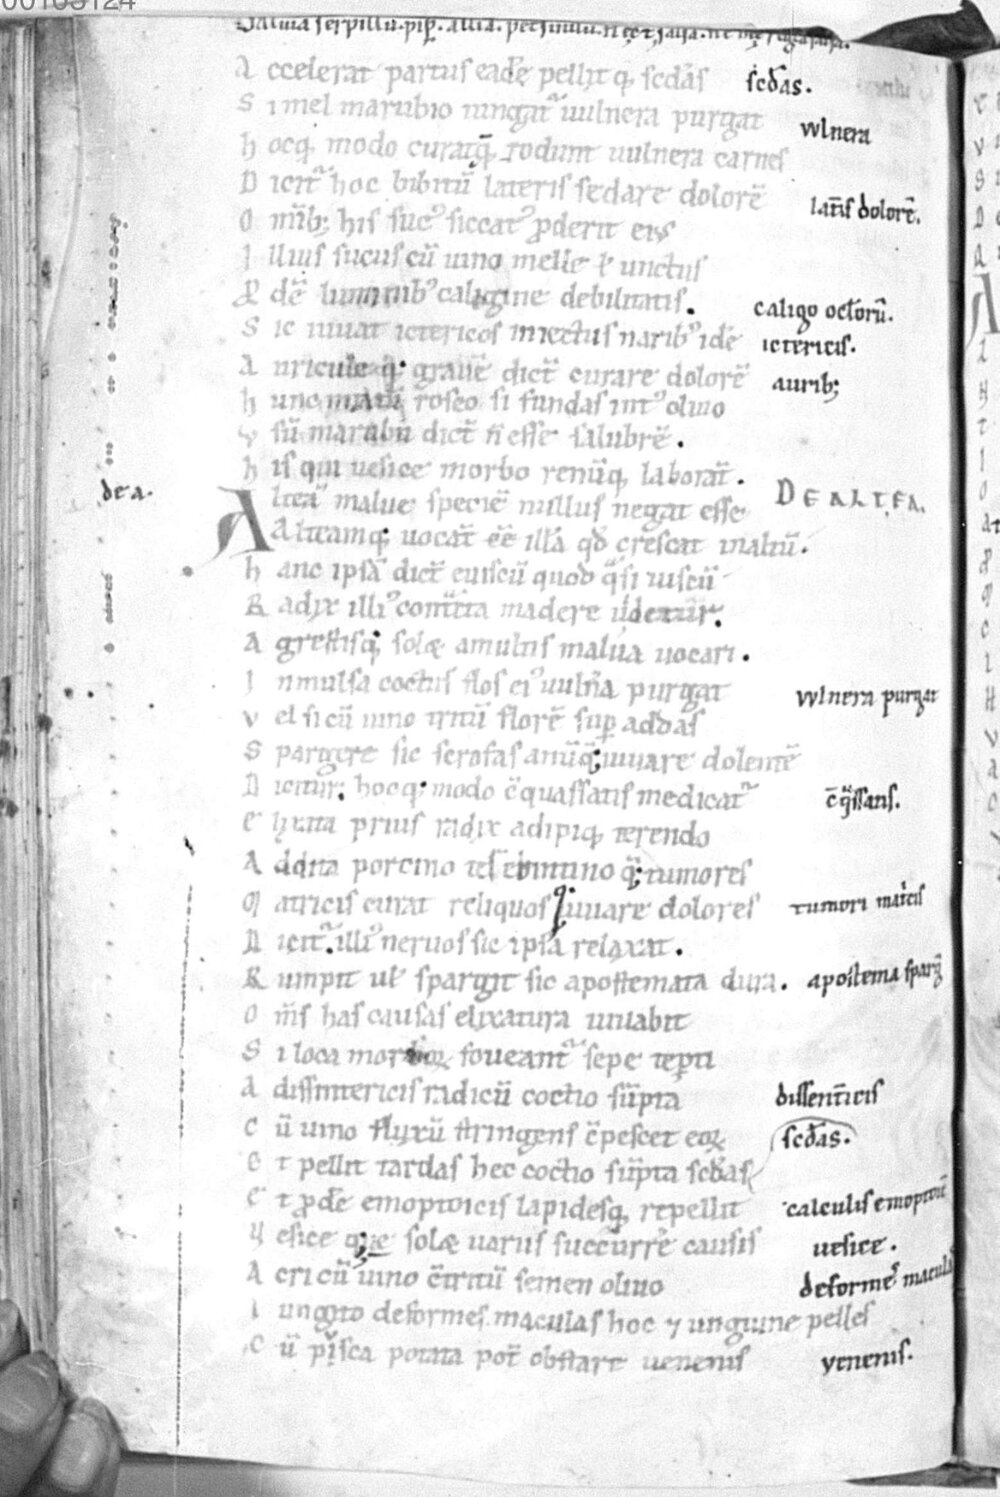 00105124
Saluia serpillū. pip. allia. petsinulū.
A ccelerat partus eadē pellit q; scdas scdas.
S i mel marubio iungat᷑ uulnera purgat wlnera
h ocq; modo curatq̄ rodunt uulnera carnes
D icit᷑ hoc bibitū lateris sedare dolorē lat̄is dolorē.
O mīb; his sucꝰ siccatꝰ ꝓderit eius
I llius sucus cū uino melle ł unctus
ꝓ dē luminibꝰ caligine debilitatis. caligo ocłorū.
S ic iuuat ictericos iniectus naribꝰ idē ictericis.
A uricule q; grauē dict᷑ curare dolorē aurib;
h unc roseo si fundas intꝰ oliuo
sū marubii dict᷑ n̄ esse salubrē.
h is qui uesice morbo renūq; laborat᷑.
de a.
DE ALTEA.
A lteā malue speciē nullus negat esse
Alteamq; uocat᷑ eē illā qd̄ crescat inaltū.
h anc ipsā dict᷑ euiscū quod q̄si uiscū
R adix illiꝰ contrita madere uidetur.
A grestisq; solæ amultis malua uocari.
I nmulsa coctus flos eiꝰ uuln̄a purgat wlnera purgat
v el si cū uino tritū florē sup addas
S pargere sic scrofas iuuare dolentē
D icitur; hocq; modo c̄quassatis medicat᷑ c̄q̄ssatis.
E lixata prius radix adipiq; terendo
A ddita porcino tumores
M atricis curat reliquos q; iuuare dolores tumori mat̄cis
D icit᷑. illiꝰ neruos sic ipsa relaxat.
R umpit uł spargit sic apostemata dura. apostema sparḡ
O m̄s has causas elixatura iuuabit
S i loca morboꝝ foueant᷑ sepe tepti
A dissintericis radicū coctio sūpta dissent̄icis
C ū uino fluxū stringens c̄pescet eoꝝ scdas.
E t pellit tardas hec coctio sūpta scdas
E t ꝓdē emoptoicis lapidesq; repellit calculis emoptoic̄
V esice que solæ uariis succurrē causis uesice.
A cri cū uino c̄tritū semen oliuo deformeſ maculas
I ungito deformes maculas hoc ⁊ unguine pelles
C ū pisca potata pot᷑ obstare uenenis venenis.